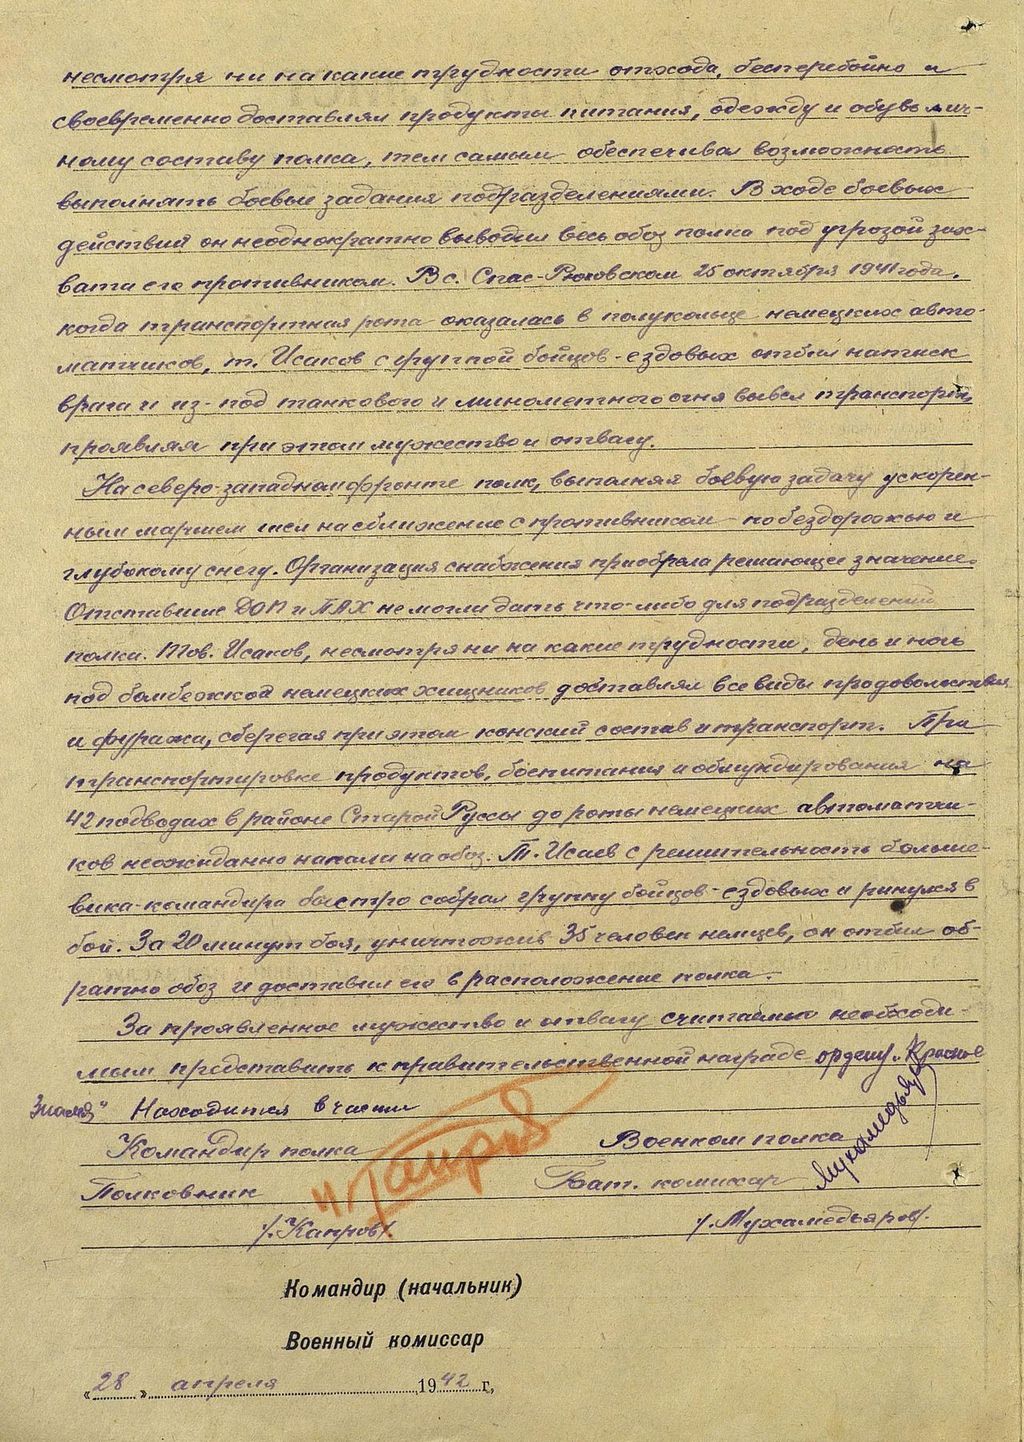 несмотря ни на какие трудности отхода, бесперебойно и
своевременно доставлял продукты питания, одежду и обувь лич-
ному составу полка, тем самым обеспечивал возможность
выполнять боевые задания подразделениями. В ходе боевых
действий он неоднократно выводил весь обоз полка под угрозой зах-
вата его противником. В с. Спас-Рюховском 25 октября 1941 года,
когда транспортная рота оказалась в полукольце немецких авто-
матчиков, т. Исаков с группой бойцов-ездовых отбил натиск
врага и из-под танкового и минометного огня вывел транспорт,
проявляя при этом мужество и отвагу.
На северо-западном фронте полк, выполняя боевую задачу ускорен-
ным маршем шел на сближение с противником по бездорожью и
глубокому снегу. Организация снабжения приобрела решающее значение.
Отставшие ДОП и ПАХ не могли дать что-либо для подразделений
полка. Тов. Исаков, несмотря ни на какие трудности, день и ночь
под бомбежкой немецких хищников доставлял все виды продовольствия
и фуража, сберегая при этом конский состав и транспорт. При
транспортировке продуктов, боепитания и обмундирования на
42 подводах в районе Старой Руссы до роты немецких автоматчи-
ков неожиданно напали на обоз. Т. Исаев с решительность больше-
вика-командира быстро собрал группу бойцов-ездовых и ринулся в
бой. За 20 минут боя, уничтожив 35 человек немцев, он отбил об-
ратно обоз и доставил его в расположение полка.
За проявленное мужество и отвагу считаем необходи-
мым представить к правительственной награде ордену „Красное
Знамя" Находится в части
Командир полка Военком полка
Полковник Бат. комиссар
/. Капров/. /. Мухамедьяров/.
Командир (начальник)
Военный комиссар
„28„ апреля 1942 г.,